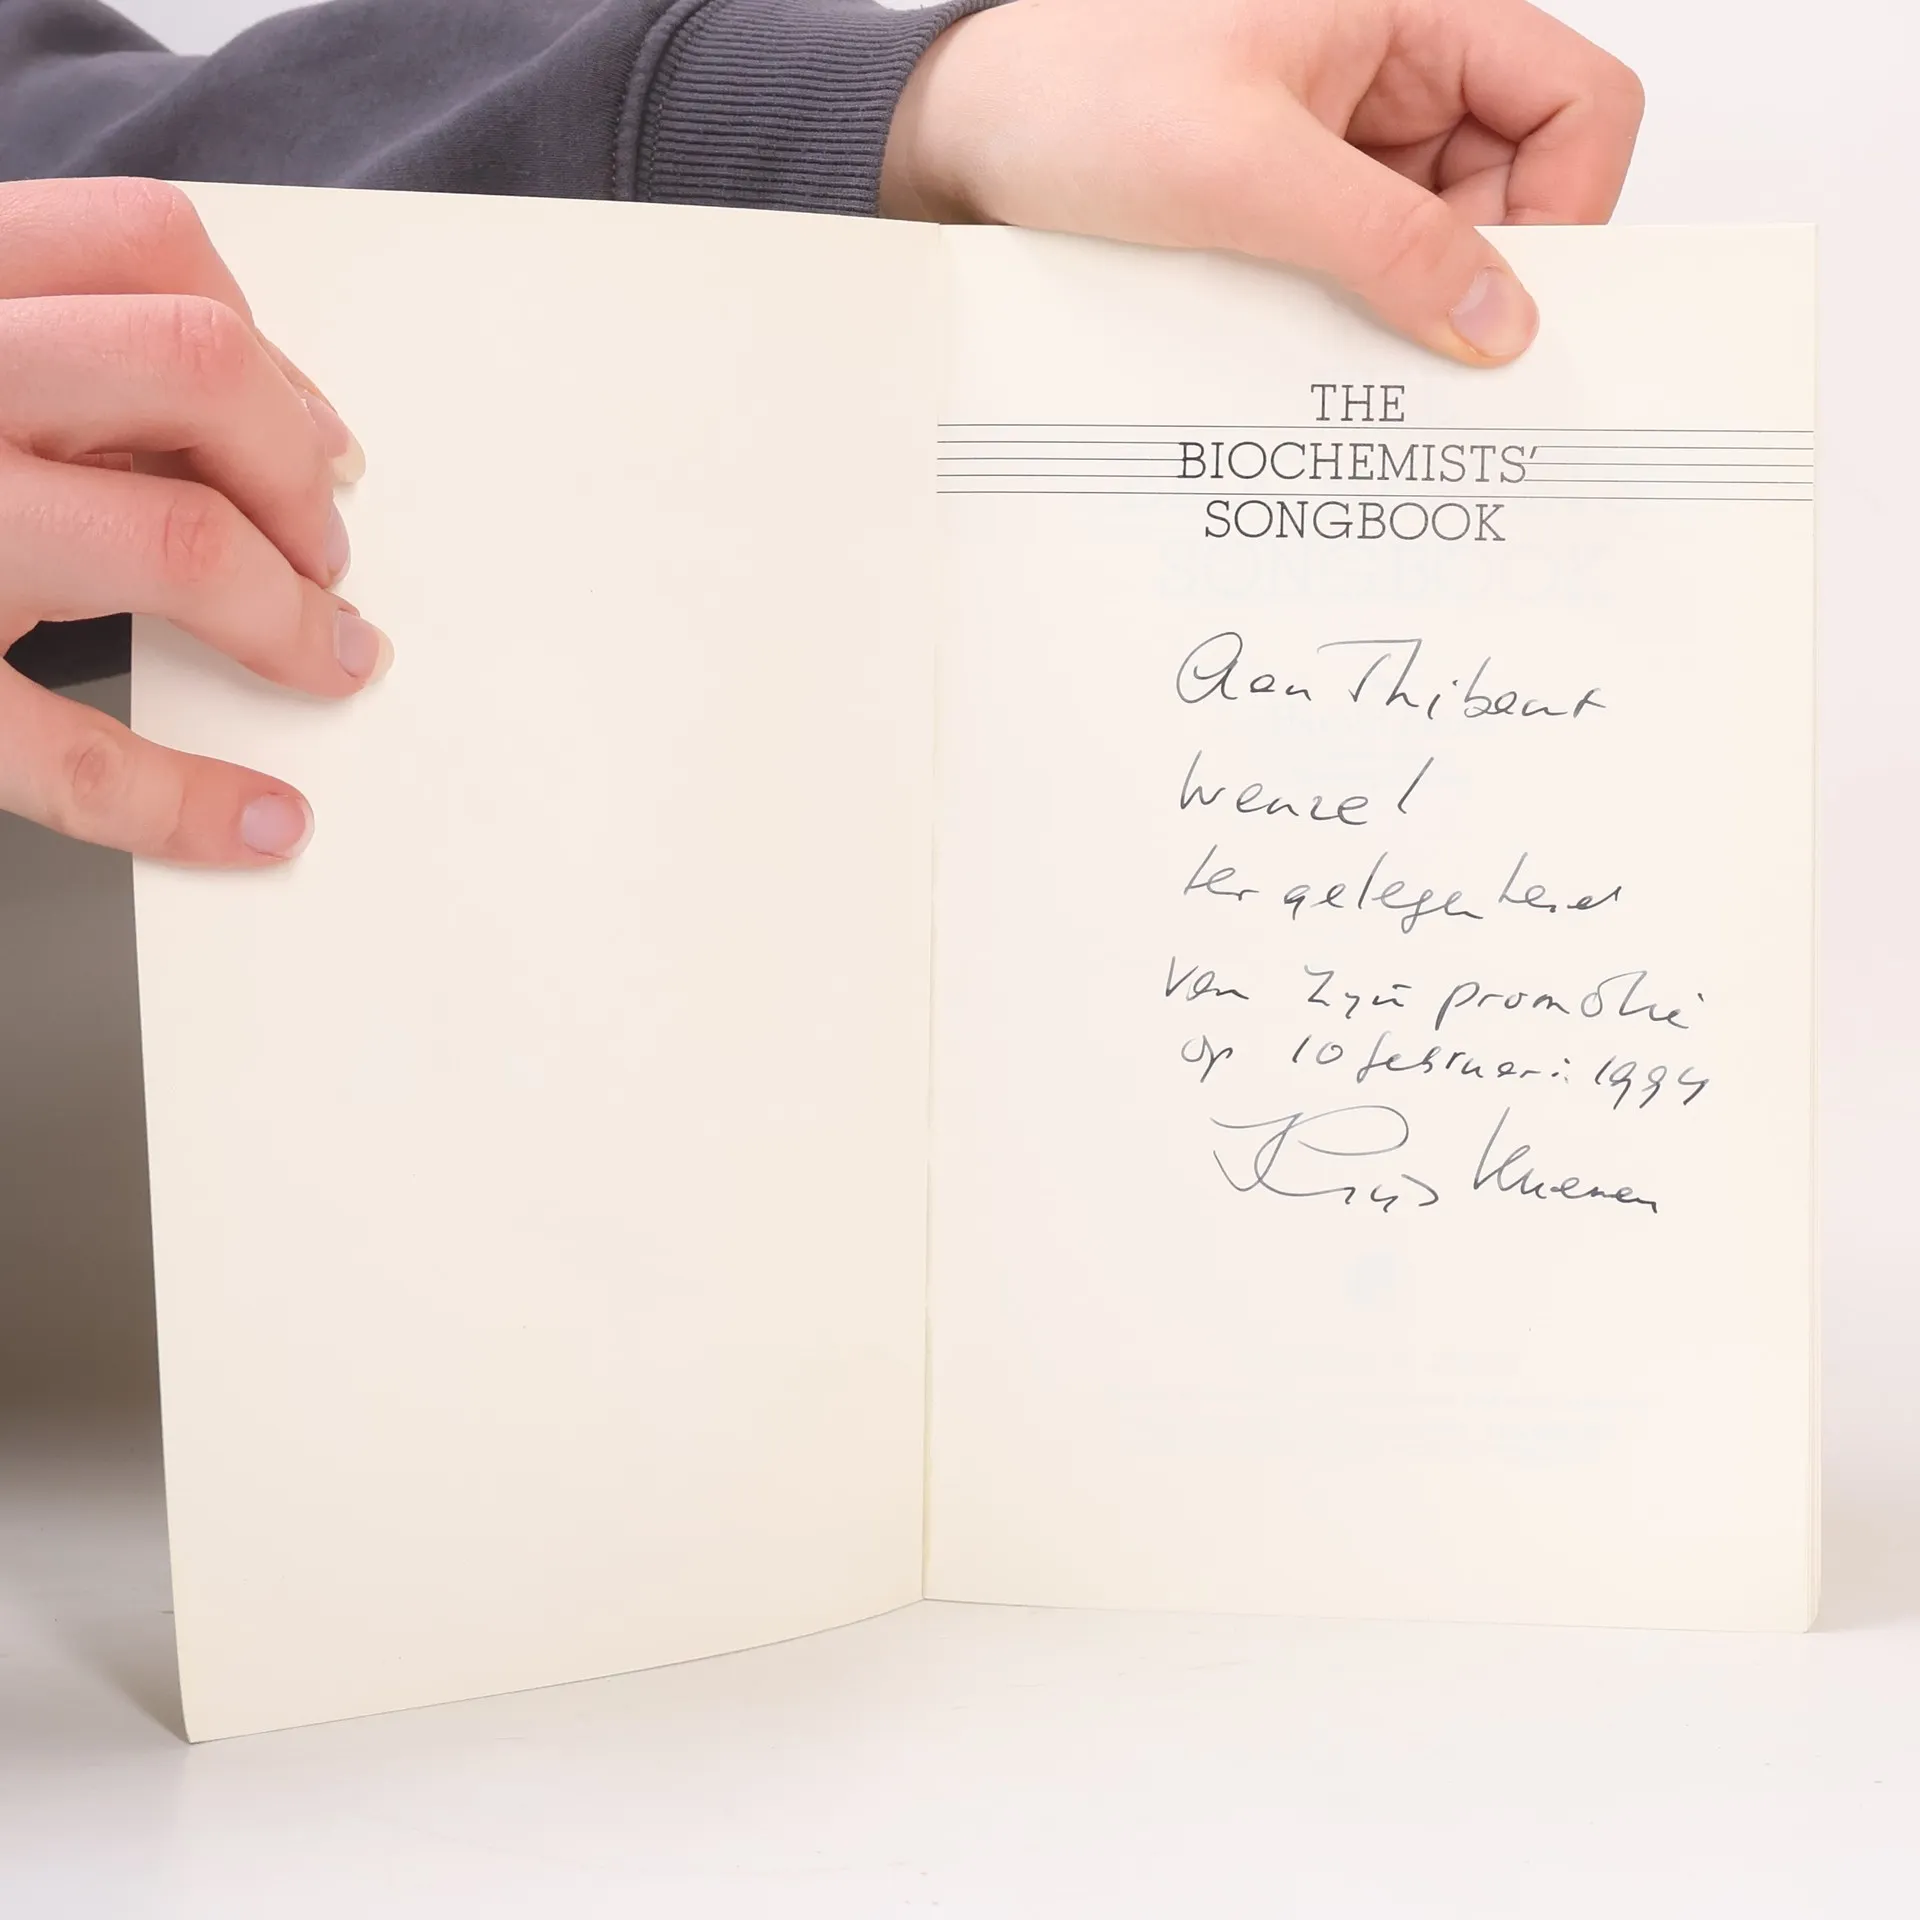 THE
BIOCHEMISTS'
SONGBOOK
Aan Thibaut
Wenzel
ter gelegenheid
van zijn promotie
op 10 februari 1994